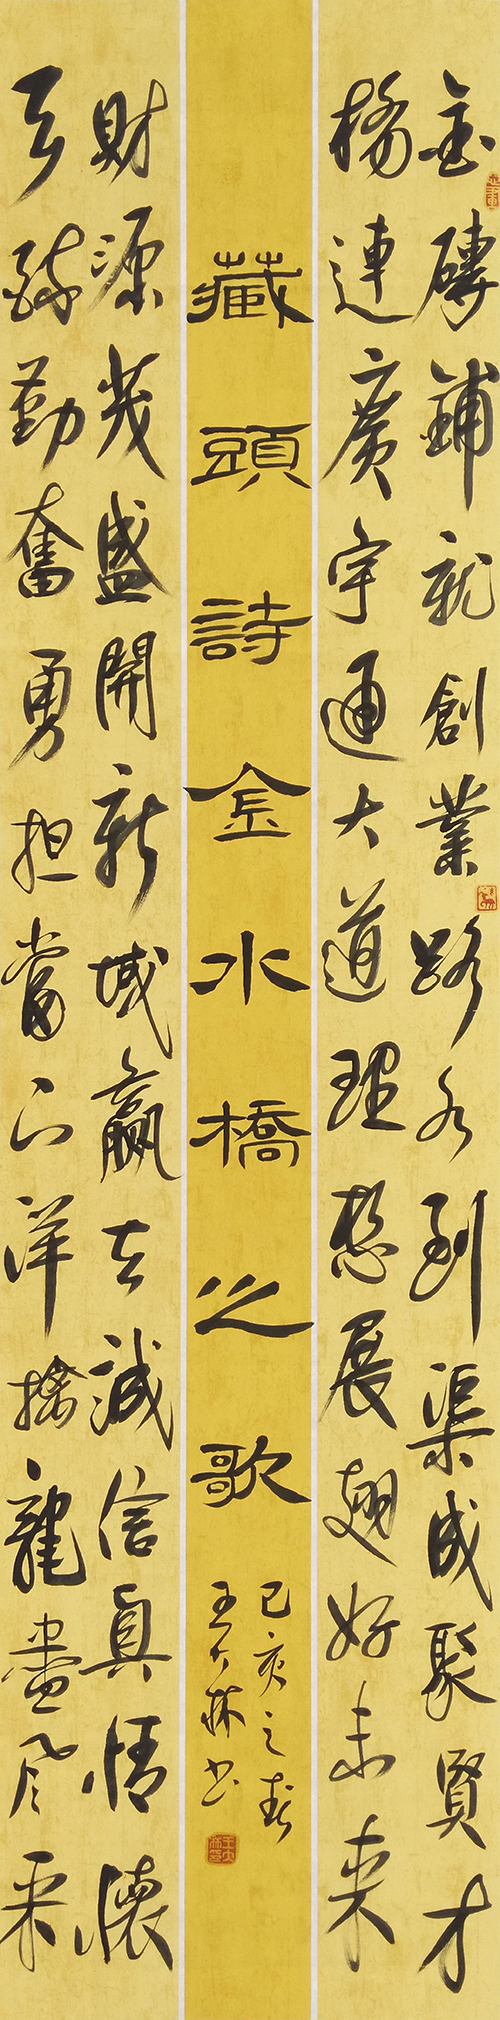 金磚鋪就創業路水到渠成聚賢才
橋連廣宇通大道理想展翅好未來
藏頭詩金水橋之歌
己亥之春
王大林书
財源茂盛開新域贏在誠信真情懷
天酬勤奮勇担當下洋擒龍盡風采